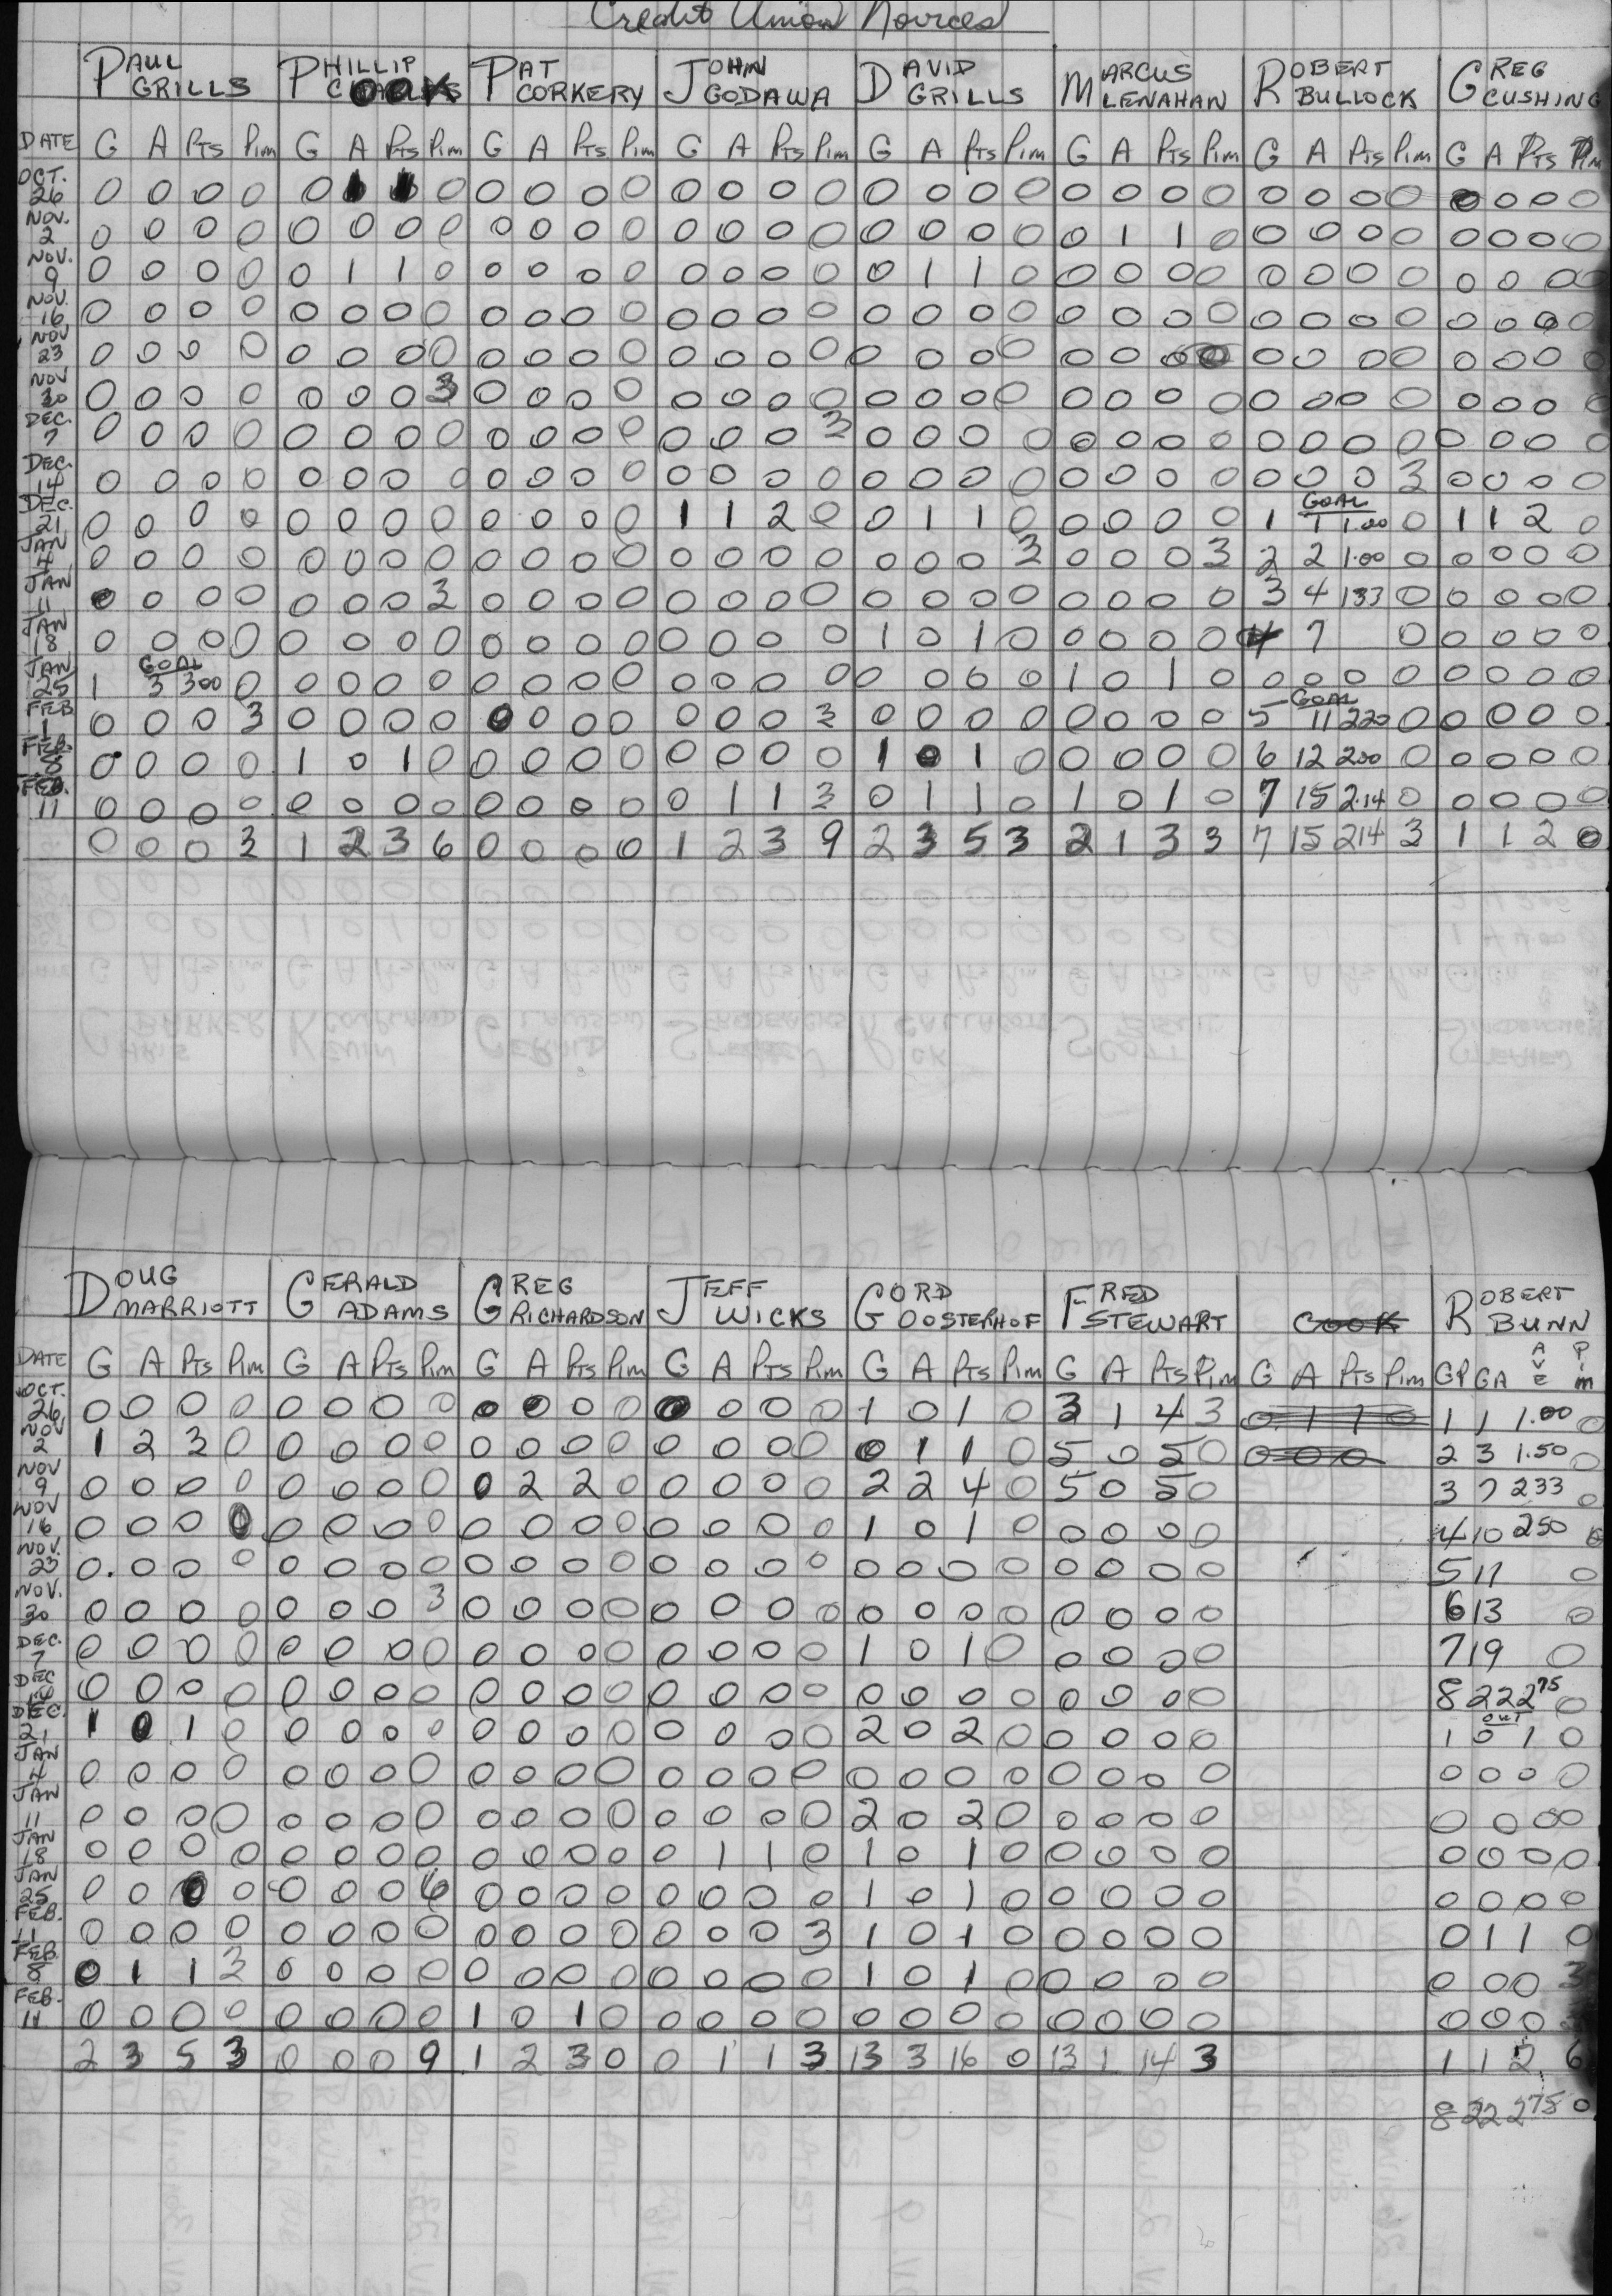 Credit Union Novices
PAUL GRILLS PHILLIP COOK PAT CORKERY JOHN GODAWA DAVID GRILLS MARCUS LENAHAN ROBERT BULLOCK GREG CUSHING
DATE G A Pts Pim G A Pts Pim G A Pts Pim G A Pts Pim G A Pts Pim G A Pts Pim G A Pts Pim G A Pts Pim
OCT. 26 0 0 0 0 0 1 1 0 0 0 0 0 0 0 0 0 0 0 0 0 0 0 0 0 0 0 0 0 0 0 0 0
NOV. 2 0 0 0 0 0 0 0 0 0 0 0 0 0 0 0 0 0 0 0 0 0 1 1 0 0 0 0 0 0 0 0 0
NOV. 9 0 0 0 0 0 1 1 0 0 0 0 0 0 0 0 0 0 1 1 0 0 0 0 0 0 0 0 0 0 0 0 0
NOV. 16 0 0 0 0 0 0 0 0 0 0 0 0 0 0 0 0 0 0 0 0 0 0 0 0 0 0 0 0 0 0 0 0
NOV 23 0 0 0 0 0 0 0 0 0 0 0 0 0 0 0 0 0 0 0 0 0 0 0 0 0 0 0 0 0 0 0 0
NOV 30 0 0 0 0 0 0 0 3 0 0 0 0 0 0 0 0 0 0 0 0 0 0 0 0 0 0 0 0 0 0 0 0
DEC. 7 0 0 0 0 0 0 0 0 0 0 0 0 0 0 0 3 0 0 0 0 0 0 0 0 0 0 0 0 0 0 0 0
DEC. 14 0 0 0 0 0 0 0 0 0 0 0 0 0 0 0 0 0 0 0 0 0 0 0 0 0 0 0 3 0 0 0 0
DEC. 21 0 0 0 0 0 0 0 0 0 0 0 0 1 1 2 0 0 1 1 0 0 0 0 0 1 GOAL 1 1.00 0 1 1 2 0
JAN 4 0 0 0 0 0 0 0 0 0 0 0 0 0 0 0 0 0 0 0 3 0 0 0 3 2 2 1.00 0 0 0 0 0
JAN 11 0 0 0 0 0 0 0 3 0 0 0 0 0 0 0 0 0 0 0 0 0 0 0 0 3 4 133 0 0 0 0 0
JAN 18 0 0 0 0 0 0 0 0 0 0 0 0 0 0 0 0 1 0 1 0 0 0 0 0 4 7 0 0 0 0 0
JAN 25 1 GOAL 3 300 0 0 0 0 0 0 0 0 0 0 0 0 0 0 0 0 0 1 0 1 0 0 0 0 0 0 0 0 0
FEB 1 0 0 0 3 0 0 0 0 0 0 0 0 0 0 0 3 0 0 0 0 0 0 0 0 5 GOAL 11 220 0 0 0 0 0
FEB. 8 0 0 0 0 1 0 1 0 0 0 0 0 0 0 0 0 1 0 1 0 0 0 0 0 6 12 200 0 0 0 0 0
FEB. 11 0 0 0 0 0 0 0 0 0 0 0 0 0 1 1 3 0 1 1 0 1 0 1 0 7 15 2.14 0 0 0 0 0
0 0 0 3 1 2 3 6 0 0 0 0 1 2 3 9 2 3 5 3 2 1 3 3 7 15 214 3 1 1 2 0
DOUG MARRIOTT GERALD ADAMS GREG RICHARDSON JEFF WICKS GORD OOSTERHOF FRED STEWART COOK ROBERT BUNN
DATE G A Pts Pim G A Pts Pim G A Pts Pim G A Pts Pim G A Pts Pim G A Pts Pim G A Pts Pim GP GA AVE Pim
OCT. 26 0 0 0 0 0 0 0 0 0 0 0 0 0 0 0 0 1 0 1 0 3 1 4 3 0 1 1 0 1 1 1.00 0
NOV 2 1 2 3 0 0 0 0 0 0 0 0 0 0 0 0 0 0 1 1 0 5 0 5 0 0 0 0 2 3 1.50 0
NOV 9 0 0 0 0 0 0 0 0 0 2 2 0 0 0 0 0 2 2 4 0 5 0 5 0 3 7 233 0
NOV 16 0 0 0 0 0 0 0 0 0 0 0 0 0 0 0 0 1 0 1 0 0 0 0 0 4 10 250 0
NOV. 23 0 0 0 0 0 0 0 0 0 0 0 0 0 0 0 0 0 0 0 0 0 0 0 0 5 11 0
NOV. 30 0 0 0 0 0 0 0 3 0 0 0 0 0 0 0 0 0 0 0 0 0 0 0 0 6 13 0
DEC. 7 0 0 0 0 0 0 0 0 0 0 0 0 0 0 0 0 1 0 1 0 0 0 0 0 7 19 0
DEC 14 0 0 0 0 0 0 0 0 0 0 0 0 0 0 0 0 0 0 0 0 0 0 0 0 8 22 275 0
DEC. 21 1 0 1 0 0 0 0 0 0 0 0 0 0 0 0 0 2 0 2 0 0 0 0 0 OUT 1 0 1 0
JAN 4 0 0 0 0 0 0 0 0 0 0 0 0 0 0 0 0 0 0 0 0 0 0 0 0 0 0 0 0
JAN 11 0 0 0 0 0 0 0 0 0 0 0 0 0 0 0 0 2 0 2 0 0 0 0 0 0 0 0 0
JAN 18 0 0 0 0 0 0 0 0 0 0 0 0 0 1 1 0 1 0 1 0 0 0 0 0 0 0 0 0
JAN 25 0 0 0 0 0 0 0 6 0 0 0 0 0 0 0 0 1 0 1 0 0 0 0 0 0 0 0 0
FEB. 1 0 0 0 0 0 0 0 0 0 0 0 0 0 0 0 3 1 0 1 0 0 0 0 0 0 1 1 0
FEB. 8 0 1 1 3 0 0 0 0 0 0 0 0 0 0 0 0 1 0 1 0 0 0 0 0 0 0 0 3
FEB. 11 0 0 0 0 0 0 0 0 1 0 1 0 0 0 0 0 0 0 0 0 0 0 0 0 0 0 0
2 3 5 3 0 0 0 9 1 2 3 0 0 1 1 3 13 3 16 0 13 1 14 3 1 1 2 6
8 22 275 0